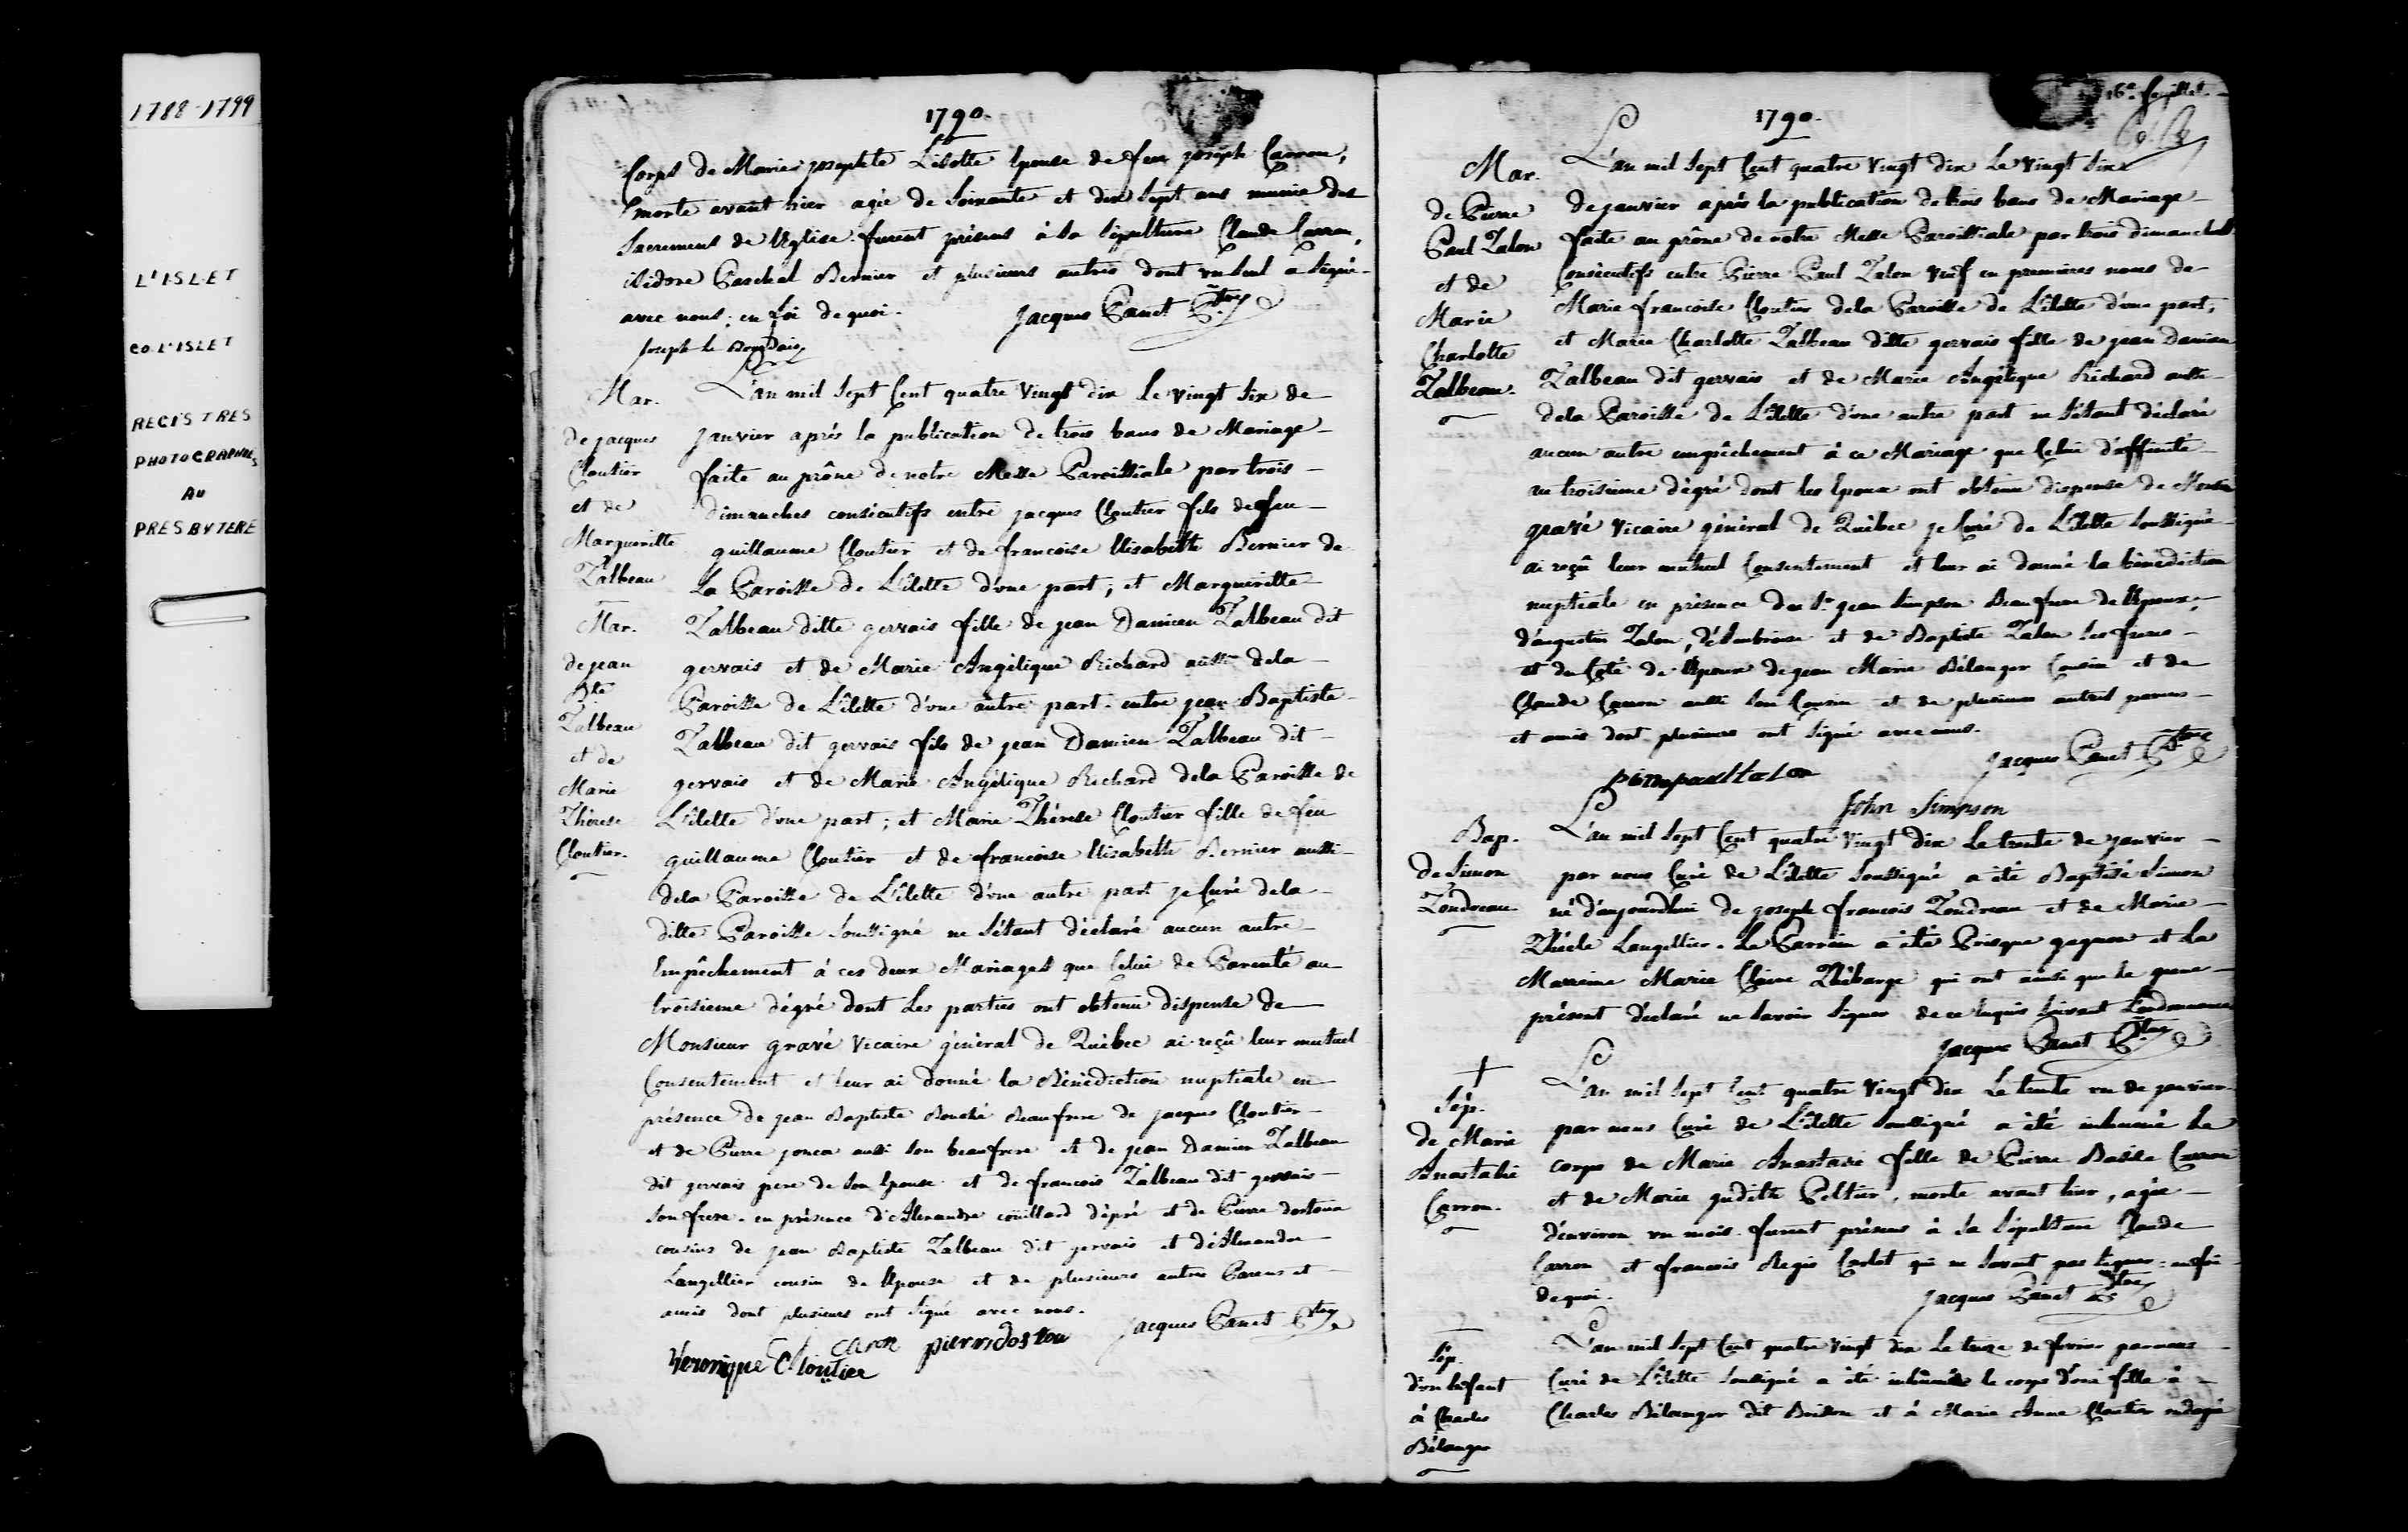 1788-1799
L'ISLET
CO. L'ISLET
REGISTRES
PHOTOGRAPHIES
AU
PRESBYTERE
1790.
Corps de Marie josephte Lisotte Epouse de feu joseph Carron,
morte avant hier agée de soixante et dix sept ans munie des
Sacremens de l'Eglise. furent présens à sa sépulture Claude Carron,
isidore Paschal Bernier et plusieurs autres dont un seul a signé
avec nous; en foi de quoi. Jacques Panet Ptre
Joseph le Bourdais
Mar.
de jacques
Cloutier
et de
Margueritte
Talbeau
Mar.
de jean
Bte
Talbeau
et de
Marie
Thérese
Cloutier.
L'an mil sept Cent quatre vingt dix le vingt six de
janvier après la publication de trois bans de Mariage
faite au prône de notre Messe Paroissiale par trois
dimanches consécutifs entre jacques Cloutier fils de feu
guillaume Cloutier et de francoise Elisabette Bernier de
la Paroisse de L'ilette d'une part; et Marguerite
Talbeau ditte gervais fille de jean Damien Talbeau dit
gervais et de Marie Angélique Richard aussi dela
Paroisse de L'ilette d'une autre part. entre jean Baptiste
Talbeau dit gervais fils de jean Damien Talbeau dit
gervais et de Marie Angélique Richard dela Paroisse de
L'ilette d'une part; et Marie Thérese Cloutier fille de feu
guillaume Cloutier et de francoise Elisabette Bernier aussi
dela Paroisse de L'ilette d'une autre part je Curé dela
ditte Paroisse soussigné ne s'étant déclaré aucun autre
Empêchement à ces deux Mariages que Celui de Parenté au
troisieme dégré dont Les parties ont obtenu dispense de
Monsieur gravé Vicaire général de Québec ai reçû leur mutuel
Consentement et leur ai donné la Bénédiction nuptiale en
présence de jean Baptiste Bouché Beaufrere de jacques Cloutier
et de Pierre joncas aussi son beaufrere et de jean Damien Talbeau
dit gervais pere de son Epouse et de francois Talbeau dit gervais
son frere. en présence d'Alexandre coüillard dépré et de Pierre dostou
cousins de jean Baptiste Talbeau dit gervais et d'Alexandre
Langellier cousin de l'Epouse et de plusieurs autres Parens et
amis dont plusieurs ont signé avec nous.
Jacques Panet Ptre
caron pierredostou
Veronique Cloutier
16e. feuillet.
1790.
Mar.
de Pierre
Paul Talon
et de
Marie
Charlotte
Talbeau.
L'an mil sept Cent quatre vingt dix Le Vingt six
de janvier après la publication de trois bans de Mariage
faite au prône de notre Messe Paroissiale par trois dimanches
Consécutifs entre Pierre Paul Talon veuf en premieres noces de
Marie francoise Cloutier dela Paroisse de L'ilette d'une part,
et Marie Charlotte Talbeau ditte gervais fille de jean Damien
Talbeau dit gervais et de Marie Angélique Richard aussi
dela Paroisse de L'ilette d'une autre part ne s'étant déclaré
aucun autre empêchement à ce Mariage que Celui d'affinité
au troisieme dégré dont les Epoux ont obtenu dispense de
gravé Vicaire général de Québec je Curé de L'ilette soussigné
ai reçû leur mutuel Consentement et leur ai donné la bénédiction
nuptiale en présence du Sr. jean Simpson Beaufrere de l'Epoux,
d'augustin Talon, d'Ambroise et de Baptiste Talon ses freres
et du Coté de l'Epouse de jean Marie Bélanger Cousin et de
Claude Carron aussi son Cousin et de plusieurs autres parens
et amis dont plusieurs ont signé avec nous.
Jacques Panet Ptre
pierrepaultalon
John Simpson
Bap.
de Simon
Tondreau
L'an mil sept Cent quatre vingt dix Le trente de janvier
par nous Curé de L'ilette soussigné a été Baptisé Simon
né d'aujourdhui de joseph francois Tondreau et de Marie
Thécle Langellier. Le Parrain a été Prisque gagnon et la
Marreine Marie Claire Thibarge qui ont ainsi que le pere
présent déclaré ne savoir signer de ce enquis suivant L'ordonnance
Jacques Panet Ptre
Sép.
de Marie
Anastasie
Carron.
L'an mil sept Cent quatre vingt dix Le trente un de janvier
par nous Curé de L'ilette soussigné a été inhumé le
corps de Marie Anastasie fille de Pierre Basile Carron
et de Marie judith Peltier, morte avant hier, agée
d'environ un mois. furent présens à sa sépulture Claude
Carron et francois Régis Carlot qui ne savent pas signer: en foi
de quoi. Jacques Panet Ptre
Sép.
d'un Enfant
à Charles
Bélanger
L'an mil sept Cent quatre vingt dix Le treize de fevrier par nous
Curé de L'ilette soussigné a été inhumé le corps d'une fille à
Charles Bélanger dit Boisson et à Marie Anne Cloutier ondoyée